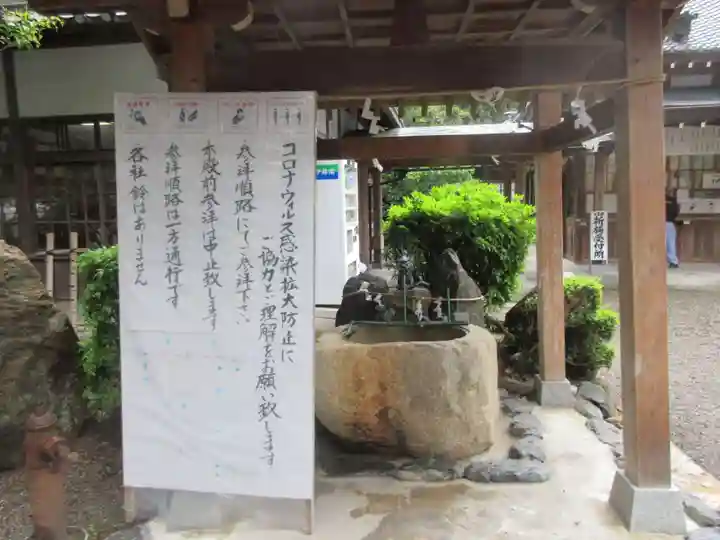 コロナウィルス感染拡大防止に
ご協力とご理解をお願い致します
参拝順路にてご参拝下さい
本殿前参拝は中止致します
参拝順路は一方通行です
各社鈴はありません
御祈祷受付所